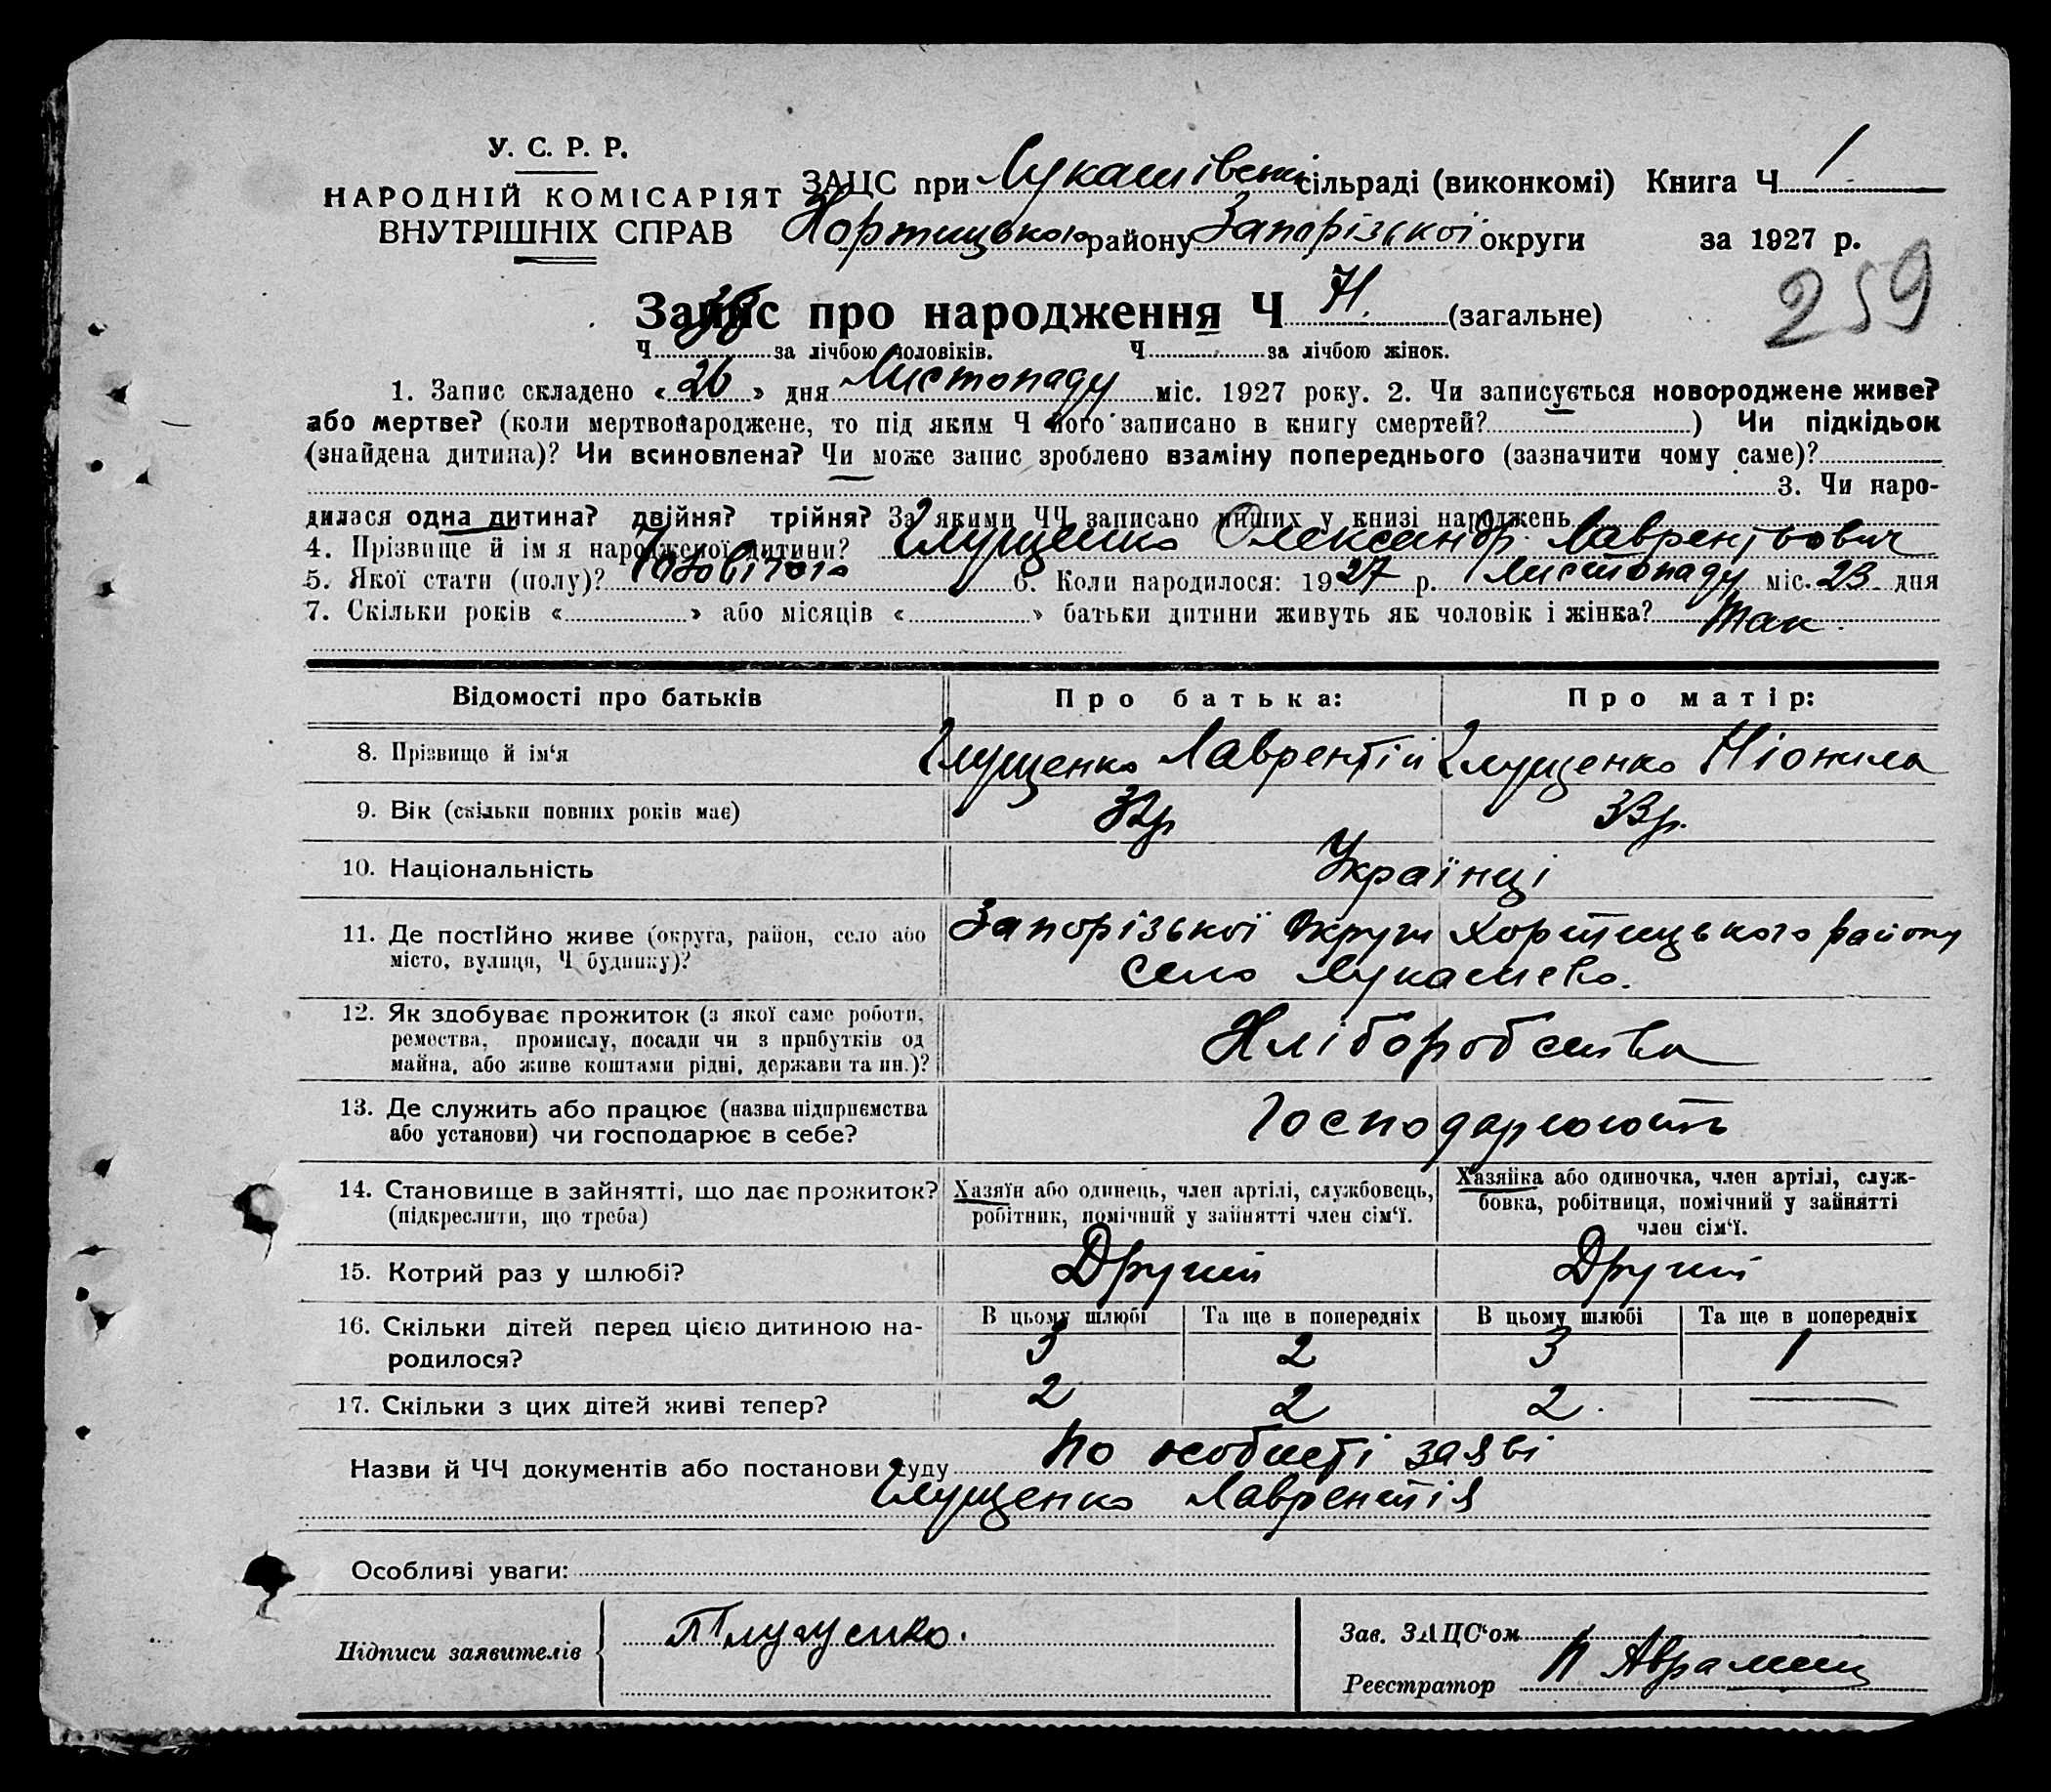 У. С. Р. Р.
НАРОДНІЙ КОМІСАРІЯТ
ВНУТРІШНІХ СПРАВ
ЗАЦС при Лукашівській сільраді (виконкомі) Книга Ч 1
Хортицького району Запорізької округи за 1927 р.
259
Запис про народження Ч 71. (загальне)
Ч 38 за лічбою чоловіків. Ч за лічбою жінок.
1. Запис складено «26» дня Листопаду міс. 1927 року. 2. Чи записується новороджене живе?
або мертве? (коли мертвонароджене, то під яким Ч його записано в книгу смертей? ) Чи підкідьок
(знайдена дитина)? Чи всиновлена? Чи може запис зроблено взаміну попереднього (зазначити чому саме)?
3. Чи наро-
дилася одна дитина? двійня? трійня? За якими ЧЧ записано инших у книзі народжень
4. Прізвище й ім я народженої дитини? Глущенко Олександр Лаврентьович
5. Якої стати (полу)? Чоловічого 6. Коли народилося: 1927 р. Листопаду міс. 23 дня
7. Скільки років « » або місяців « » батьки дитини живуть як чоловік і жінка? Так.
Відомості про батьків Про батька: Про матір:
8. Прізвище й ім'я Глущенко Лаврентій Глущенко
9. Вік (скільки повних років має) 32р 33р.
10. Національність Українці
11. Де постійно живе (округа, район, село або Запорізької Округи Хортицького району
місто, вулиця, Ч будинку)? село Лукашево.
12. Як здобуває прожиток (з якої саме роботи,
ремества, промислу, посади чи з прибутків од Хліборобства
майна, або живе коштами рідні, держави та ин.)?
13. Де служить або працює (назва підприємства Господарюють
або установи) чи господарює в себе?
14. Становище в зайнятті, що дає прожиток? Хазяїн або одинець, член артілі, службовець, Хазяйка або одиночка, член артілі, служ-
(підкреслити, що треба) робітник, помічний у зайнятті член сім'ї. бовка, робітниця, помічний у зайнятті
член сім'ї.
15. Котрий раз у шлюбі? Другий Другий
16. Скільки дітей перед цією дитиною на- В цьому шлюбі Та ще в попередніх В цьому шлюбі Та ще в попередніх
родилося? 3 2 3 1
17. Скільки з цих дітей живі тепер? 2 2 2. —
Назви й ЧЧ документів або постанови суду по особисті заяві
Глущенко Лаврентія
Особливі уваги:
Підписи заявителів
Зав. ЗАЦС'ом
Реєстратор